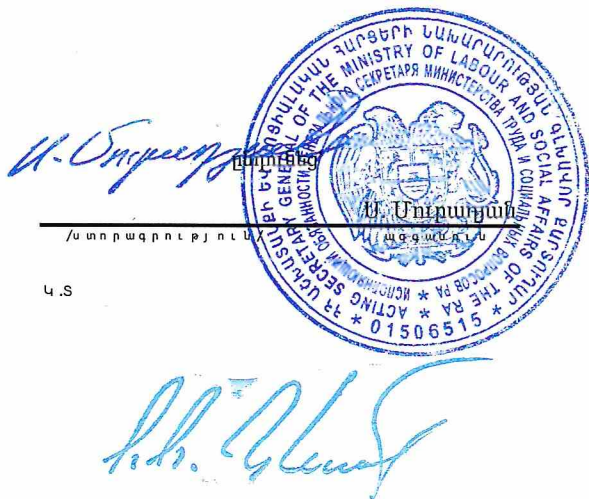 Ս. Մուրադյան
/ստորագրություն/ /ազգանուն
Կ.Տ
ՀՀ ԱՇԽԱՏԱՆՔԻ ԵՎ ՍՈՑԻԱԼԱԿԱՆ ՀԱՐՑԵՐԻ ՆԱԽԱՐԱՐՈՒԹՅԱՆ ԳԼԽԱՎՈՐ ՔԱՐՏՈՒՂԱՐ
* 01506515 *
ACTING SECRETARY GENERAL OF THE MINISTRY OF LABOUR AND SOCIAL AFFAIRS OF THE RA *
ИСПОЛНЯЮЩИЙ ОБЯЗАННОСТИ СЕКРЕТАРЯ МИНИСТЕРСТВА ТРУДА И СОЦИАЛЬНЫХ ВОПРОСОВ РА *